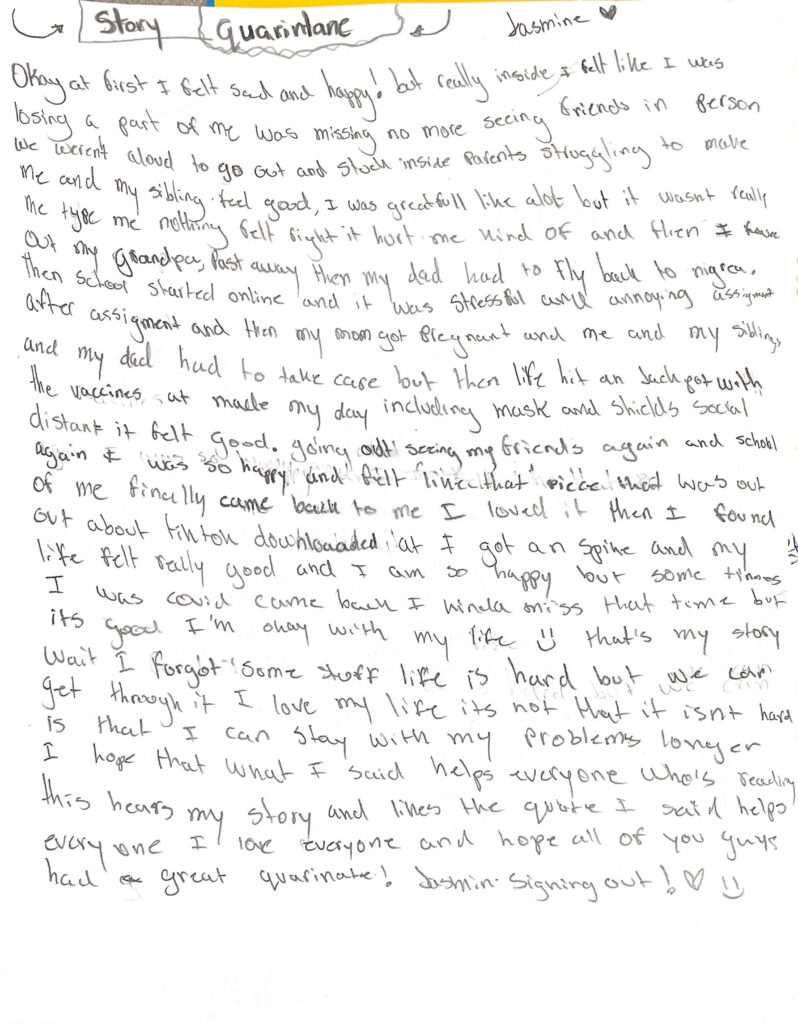 Story Quarintane Jasmine
Okay at first I felt sad and happy! but really inside I felt like I was
losing a part of me was missing no more seeing friends in person
we weren't aloud to go out and stuck inside parents struggling to make
me and my sibling feel good, I was greatfull like alot but it wasnt really
me type me nothing felt right it hurt me kind of and then I
out my Grandpa, Past away then my dad had to fly back to nigrea.
then school started online and it was stressful and annoying assigment
after assigment and then my mom got Pregnant and me and my siblings
and my dad had to take care but then life hit an Jackpot with
the vaccines, at made my day including mask and shields social
distant it felt good. going out seeing my friends again and school
again I was so happy and felt like that piece that was out
of me finally came back to me I loved it then I found
out about tiktok downloaded at I got an spike and my
life felt really good and I am so happy but some times
I was covid came back I kinda miss that time but
its good I'm okay with my life that's my story
Wait I forgot some stuff life is hard but we can
get through it I love my life its not that it isnt hard
is that I can stay with my problems longer
I hope that what I said helps everyone who's reading
this hears my story and likes the quote I said helps
everyone I love everyone and hope all of you guys
had a great quarinate! Jasmin signing out!